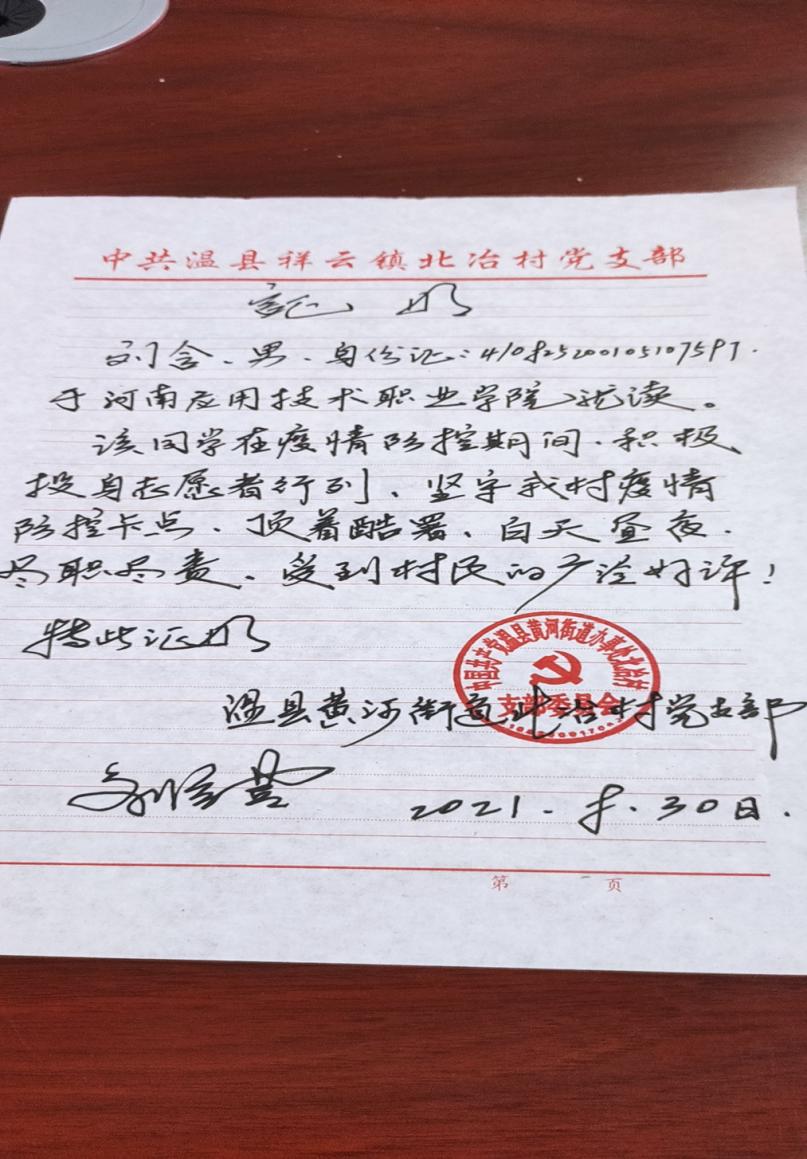 中共温县祥云镇北冶村党支部
证明
刘含、男、身份证:410825200105107597.
于河南应用技术职业学院就读。
该同学在疫情防控期间.积极、
投身志愿者行列、坚守我村疫情
防控卡点、顶着酷署、白天昼夜.
尽职尽责、受到村民的广泛好评!
特此证明
中国共产党温县黄河街道办事处北冶村
支部委员会
温县黄河街道北冶村党支部
2021.8.30日.
第 页